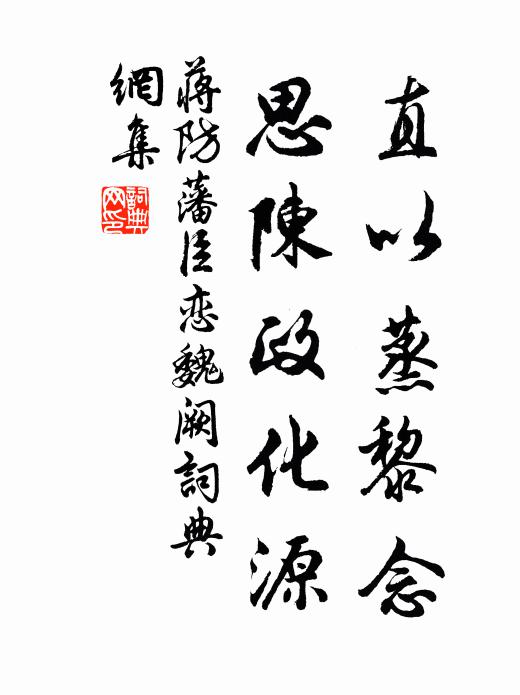 直以蒸黎念
思陳政化源
蔣防藩臣恋魏阙詞典
網集
詞典
网印